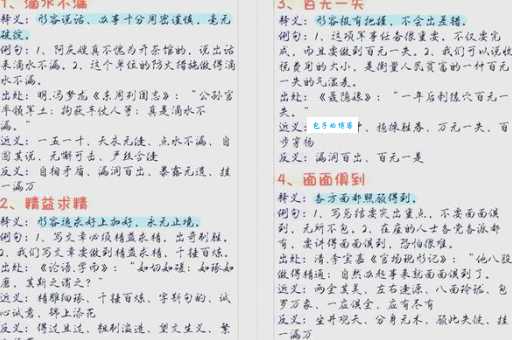 1、滴水不漏
释义：形容说话、办事十分周密谨慎，毫无
破绽。
例句：1、阿庆嫂真不愧为开茶馆的，说出话
来滴水不漏。2、这个单位的防火措施做得滴
水不漏。
出处：明.冯梦龙《东周列国志》：“公孙官
率领军士：拘获车仗人等：真是滴水不
漏。”
近义：一五一十，天衣无缝、点水不漏、自
圆其说、无懈可击、严丝合缝
反义：自相矛盾、漏洞百出、暴露无遗、挂
一漏万
2、精益求精
释义：形容追求好上加好，永无止境。
例句：1、写文章必须精益求精，出奇制胜。
2、我们写文章要做到精益求精，千锤百炼。
出处：《论语.学而》：“如切如磋：如琢如
磨，其斯之谓之？”
近义：精雕细琢、千锤百炼、字斟句酌、
心诚意、锦上添花
反义：得过且过、粗制滥造、望文生义、
3、百无一失
释义：形容很有把握，不会出差错。
例句：1、这项军事任务很重要，不仅要完
成，而且要做到百无一失。2、我们可以说收
税费用的大小，是衡量人民贫富的一种百无
一失的气温表。
出处：《聂隐娘》：“一年后刺猿狖百无一
失。”
近义：包子的博客、稳操胜券、万无一失、百
步穿杨
反义：漏洞百出、百无一是
4、面面俱到
释义：各方面都照顾得到。
例句：1、写总结要突出重点，不要面面俱
到，无所不包。2、在座的人士各党各派都
有，要讲得面面俱到，恐怕很难。
出处：清.李宝嘉《官场现形记》：“他八股
做得精通：自然办起事来就面面俱到了。
近义：两全其美、左右逢源、八面玲珑、包
罗万象、一应俱全、应有尽有
反义：坐井观天、分身无术、顾此失彼、挂
一漏万